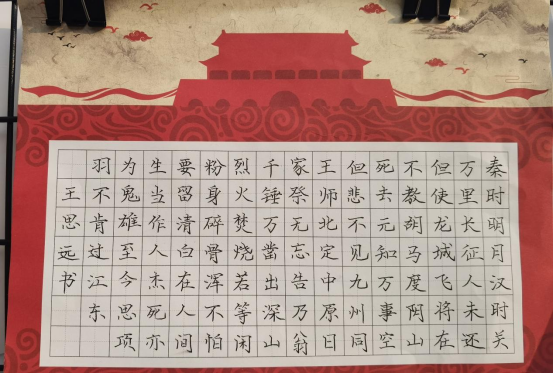 秦时明月汉时关
万里长征人未还
但使龙城飞将在
不教胡马度阴山
死去元知万事空
但悲不见九州同
王师北定中原日
家祭无忘告乃翁
千锤万凿出深山
烈火焚烧若等闲
粉身碎骨浑不怕
要留清白在人间
生当作人杰死亦
为鬼雄至今思项
羽不肯过江东
王思远书